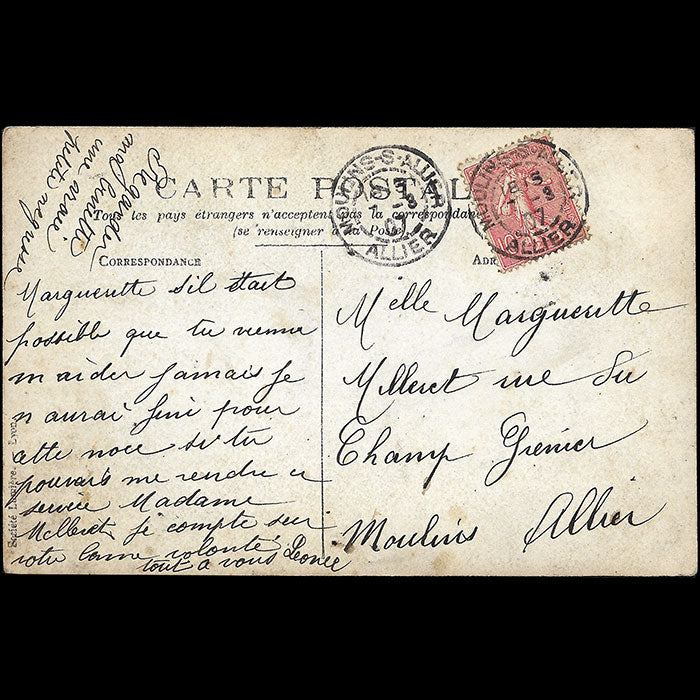 Regardez
ma
une vraie
petite negresse
CARTE POSTALE
Tous les pays étrangers n'acceptent pas la correspondance
(se renseigner à la Poste)
CORRESPONDANCE
ADR
MOULINS-S-ALLIER
5
-3
07
ALLIER
MOULINS-S-ALLIER
8 5
-3
07
ALLIER
Marguerette s'il était
possible que tu vienne
m aider jamais je
n aurai fini pour
cette noce si tu
pouvais me rendre ce
service Madame
Melleret je compte sur
votre bonne volonté
tout a vous Leonie
Melle Marguerette
Melleret rue du
Champ Grenier
Moulins Allier
Société Lumière. - Lyon